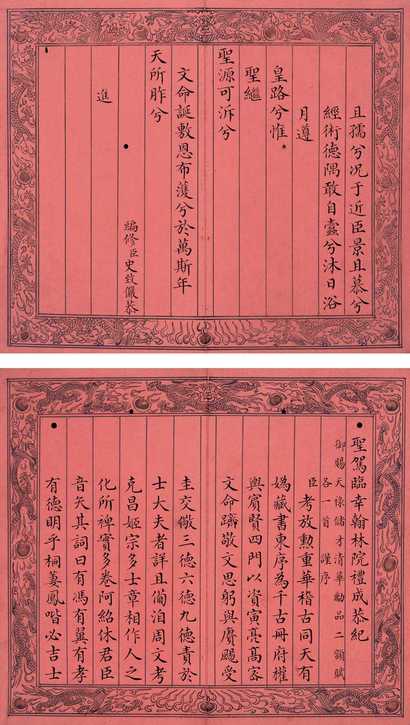 且孺兮况于近臣景且慕兮
經術德隅敢自蠹兮沐日浴
月遵
皇路兮惟
聖繼
聖源可泝兮
文命誕敷恩布濩兮於萬斯年
天所胙兮
編修臣史致儼恭
進
聖駕臨幸翰林院禮成恭紀
御賜天祿儲才清華勵品二額賦
各一首謹序
臣考放勲重華稽古同天有
媯藏書東序為千古冊府權
輿賓賢四門以資寅亮髙容
文命躋敬文思躬與賡颺受
圭交儆三德六德九德責於
士大夫者詳且備洎周文考
克昌姬宗多士章相作人之
化所裨實多卷阿紹休君臣
音矢其詞曰有馮有翼有孝
有德明乎梧萋鳳喈必吉士